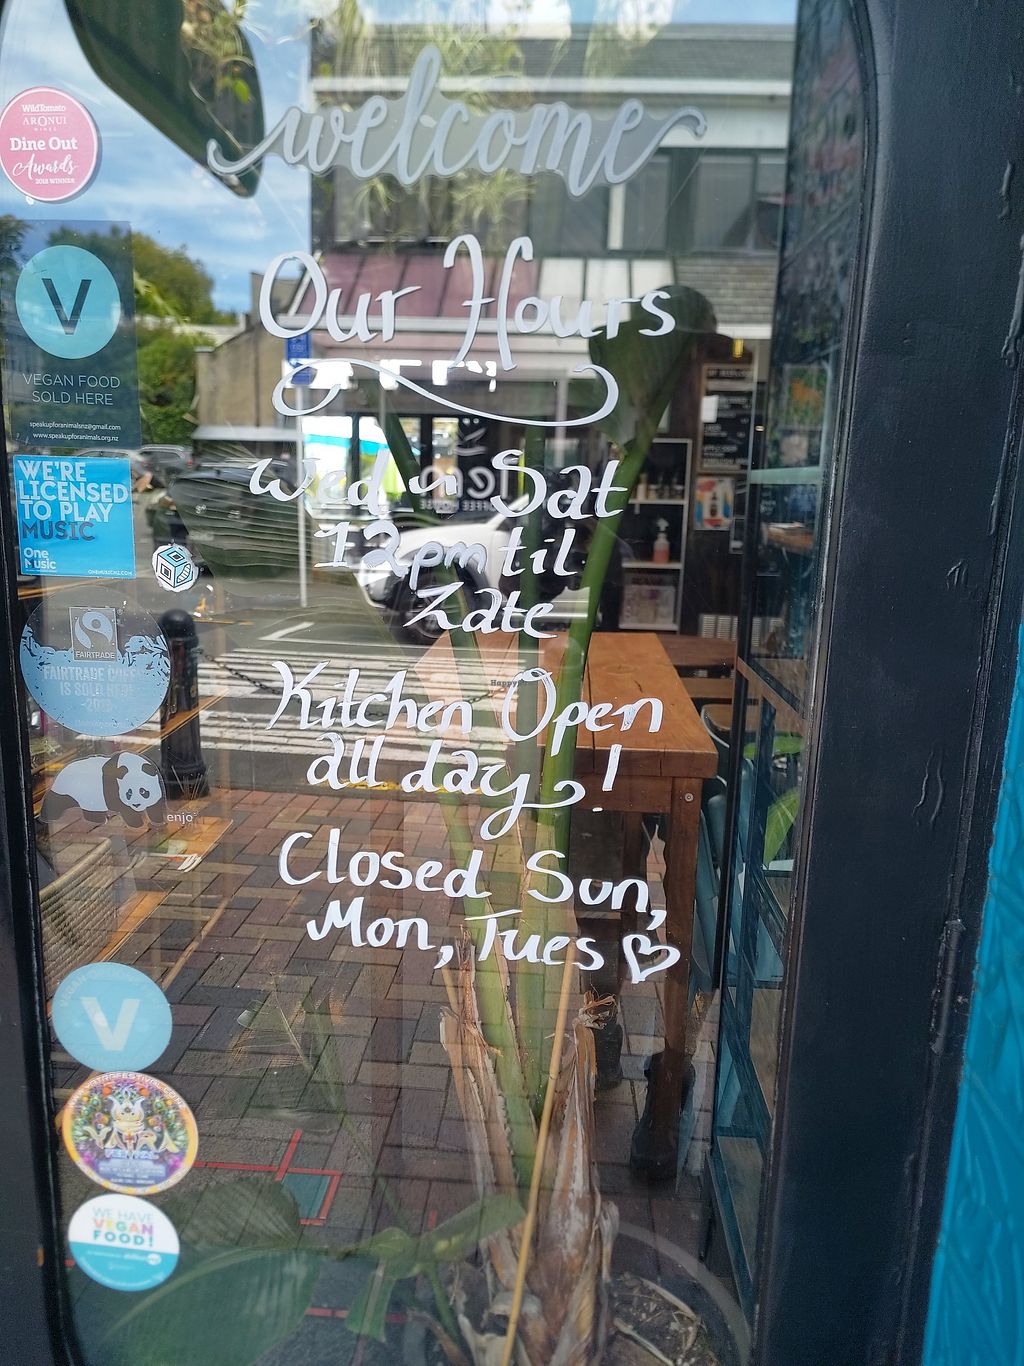 welcome
Our Hours
Wed ~ Sat
12pm til
Late
Kitchen Open
all day!
Closed Sun,
Mon, Tues ♡
WildTomato
ARONUI
WINES
Dine Out
Awards
2018 WINNER
V
VEGAN FOOD
SOLD HERE
speakupforanimalsnz@gmail.com
www.speakupforanimals.org.nz
WE'RE
LICENSED
TO PLAY
MUSIC
One
Music
ONEMUSICNZ.COM
FAIRTRADE
FAIRTRADE COFFEE
IS SOLD HERE
enjo
V
WE HAVE
VEGAN
FOOD!
Happy